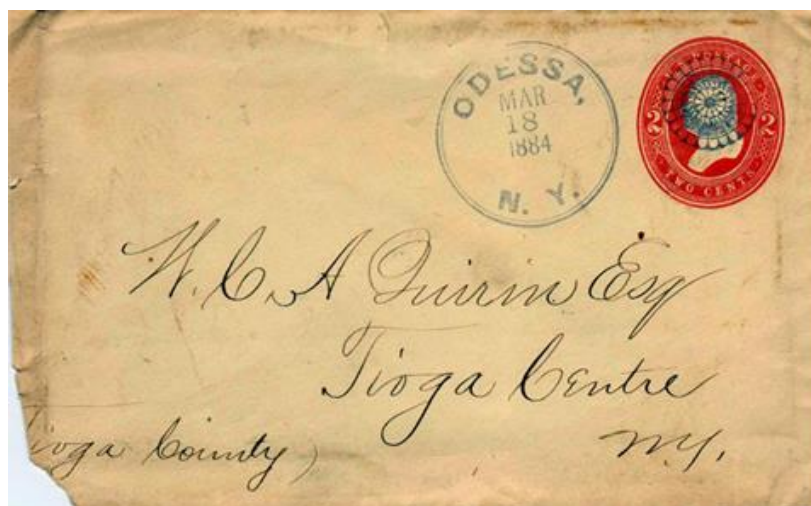 ODESSA,
MAR
18
1884
N. Y.
2 2
TWO CENTS
W. C. A Quirin Esq
Tioga Centre
Tioga County)
N.Y.